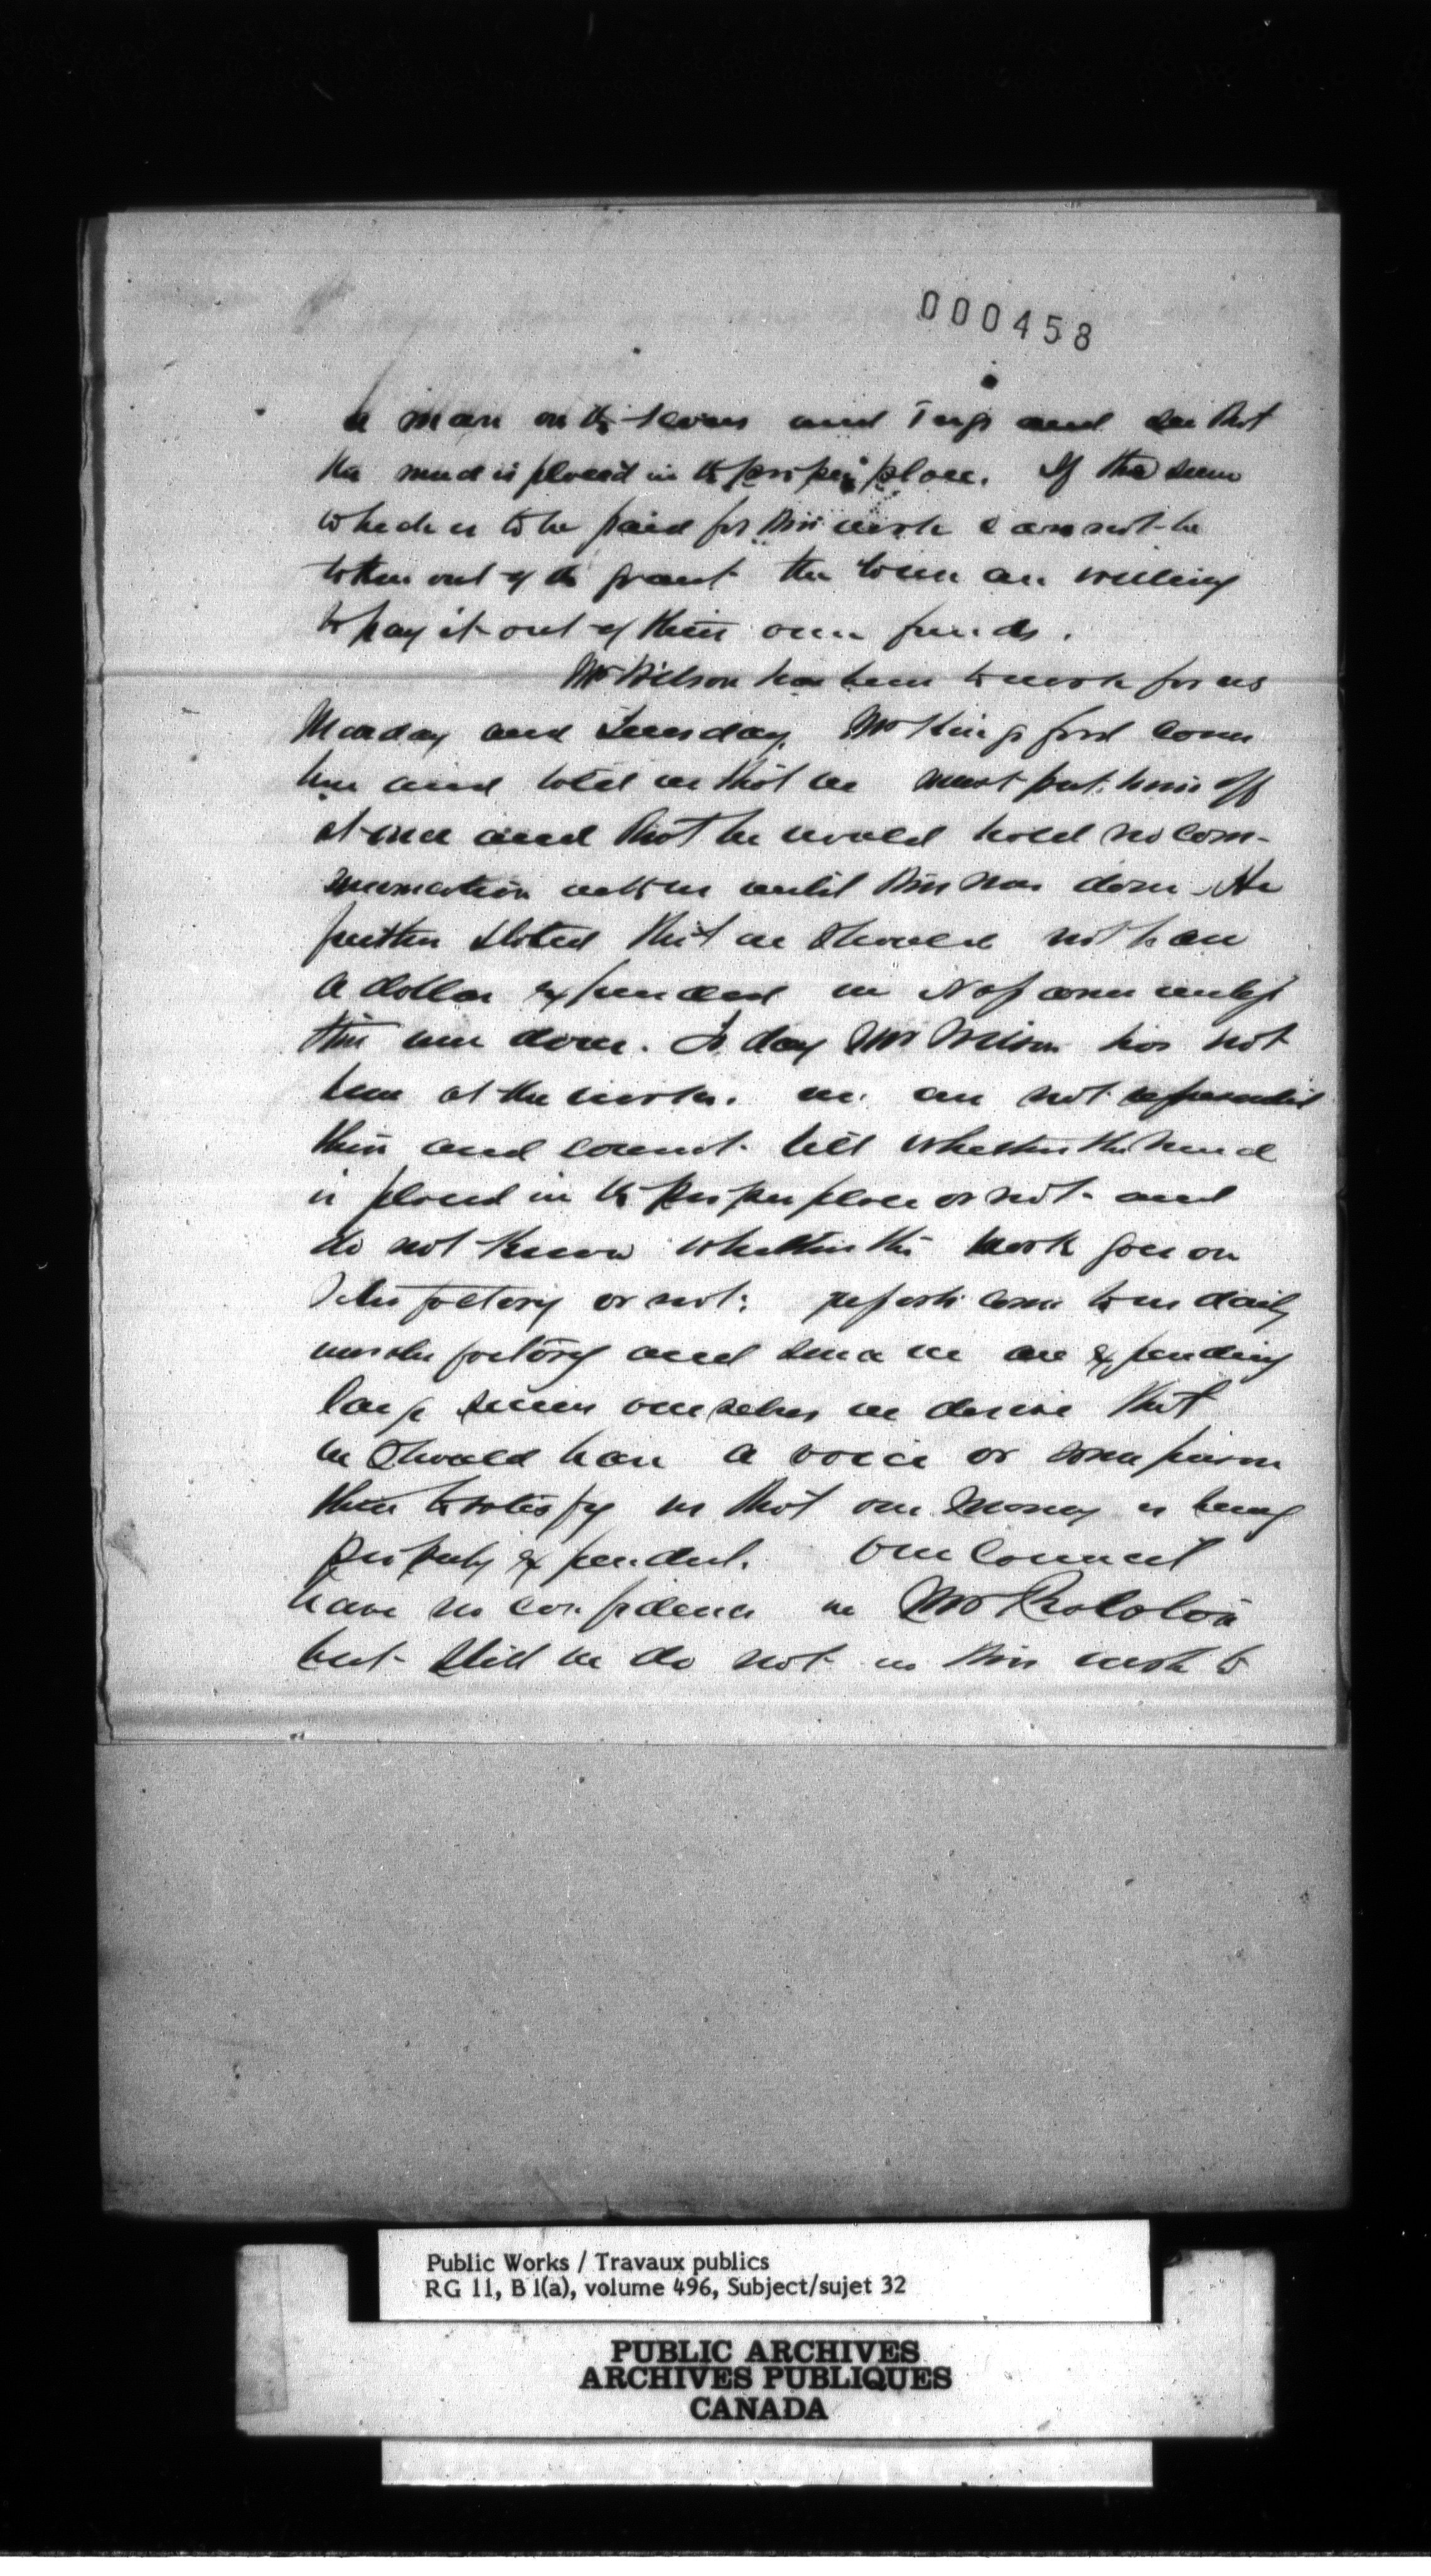 000458
a man on the scows and Tugs and see that
the mud is placed in the proper place. If the sum
which is to be paid for this work cannot be
taken out of the grant the town are willing
to pay it out of their own funds.
Mr Wilson has been to work for us
Monday and Tuesday. Mr Kingsford came
here and told us that we must put him off
at once and that he would hold no com-
munication with us until this was done. He
further stated that we should not have
a dollar expended in Napanee unless
this was done. To day Mr Wilson has not
been at the works. we are not represented
there and cannot tell whether the mud
is placed in the proper place or not and
do not know whether the work goes on
Satisfactory or not: reports come to us daily
unsatisfactory and since we are expending
large sums ourselves we desire that
we should have a voice or some person
there to satisfy us that our money is being
properly expended. Our Council
have no confidence in Mr
but still we do not in this wish to
Public Works / Travaux publics
RG 11, B 1(a), volume 496, Subject/sujet 32
PUBLIC ARCHIVES
ARCHIVES PUBLIQUES
CANADA